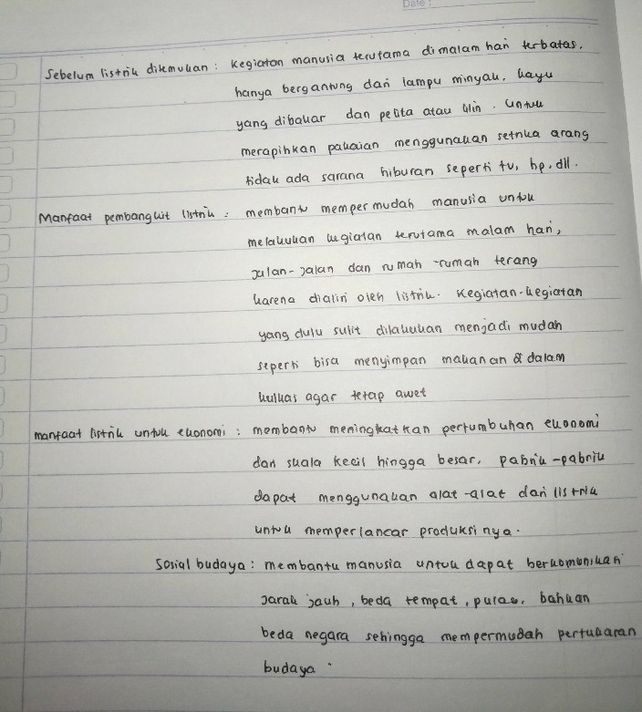 Date :
Sebelum listrik ditemukan : kegiatan manusia terutama dimalam hari terbatas.
hanya bergantung dari lampu minyak, kayu
yang dibakar dan pelita atau lilin. Untuk
merapihkan pakaian menggunakan setrika arang
tidak ada sarana hiburan seperti tv, hp, dll.
Manfaat pembangkit listrik : membantu mempermudah manusia untuk
melakukan kegiatan terutama malam hari,
jalan-jalan dan rumah-rumah terang
karena dialiri oleh listrik. Kegiatan-kegiatan
yang dulu sulit dilakukan menjadi mudah
seperti bisa menyimpan makanan di dalam
kulkas agar tetap awet
manfaat listrik untuk ekonomi : membantu meningkatkan pertumbuhan ekonomi
dari skala kecil hingga besar. pabrik-pabrik
dapat menggunakan alat-alat dari listrik
untuk memperlancar produksinya.
Sosial budaya : membantu manusia untuk dapat berkomonikasi
jarak jauh, beda tempat, pulau, bahkan
beda negara sehingga mempermudah pertukaran
budaya.